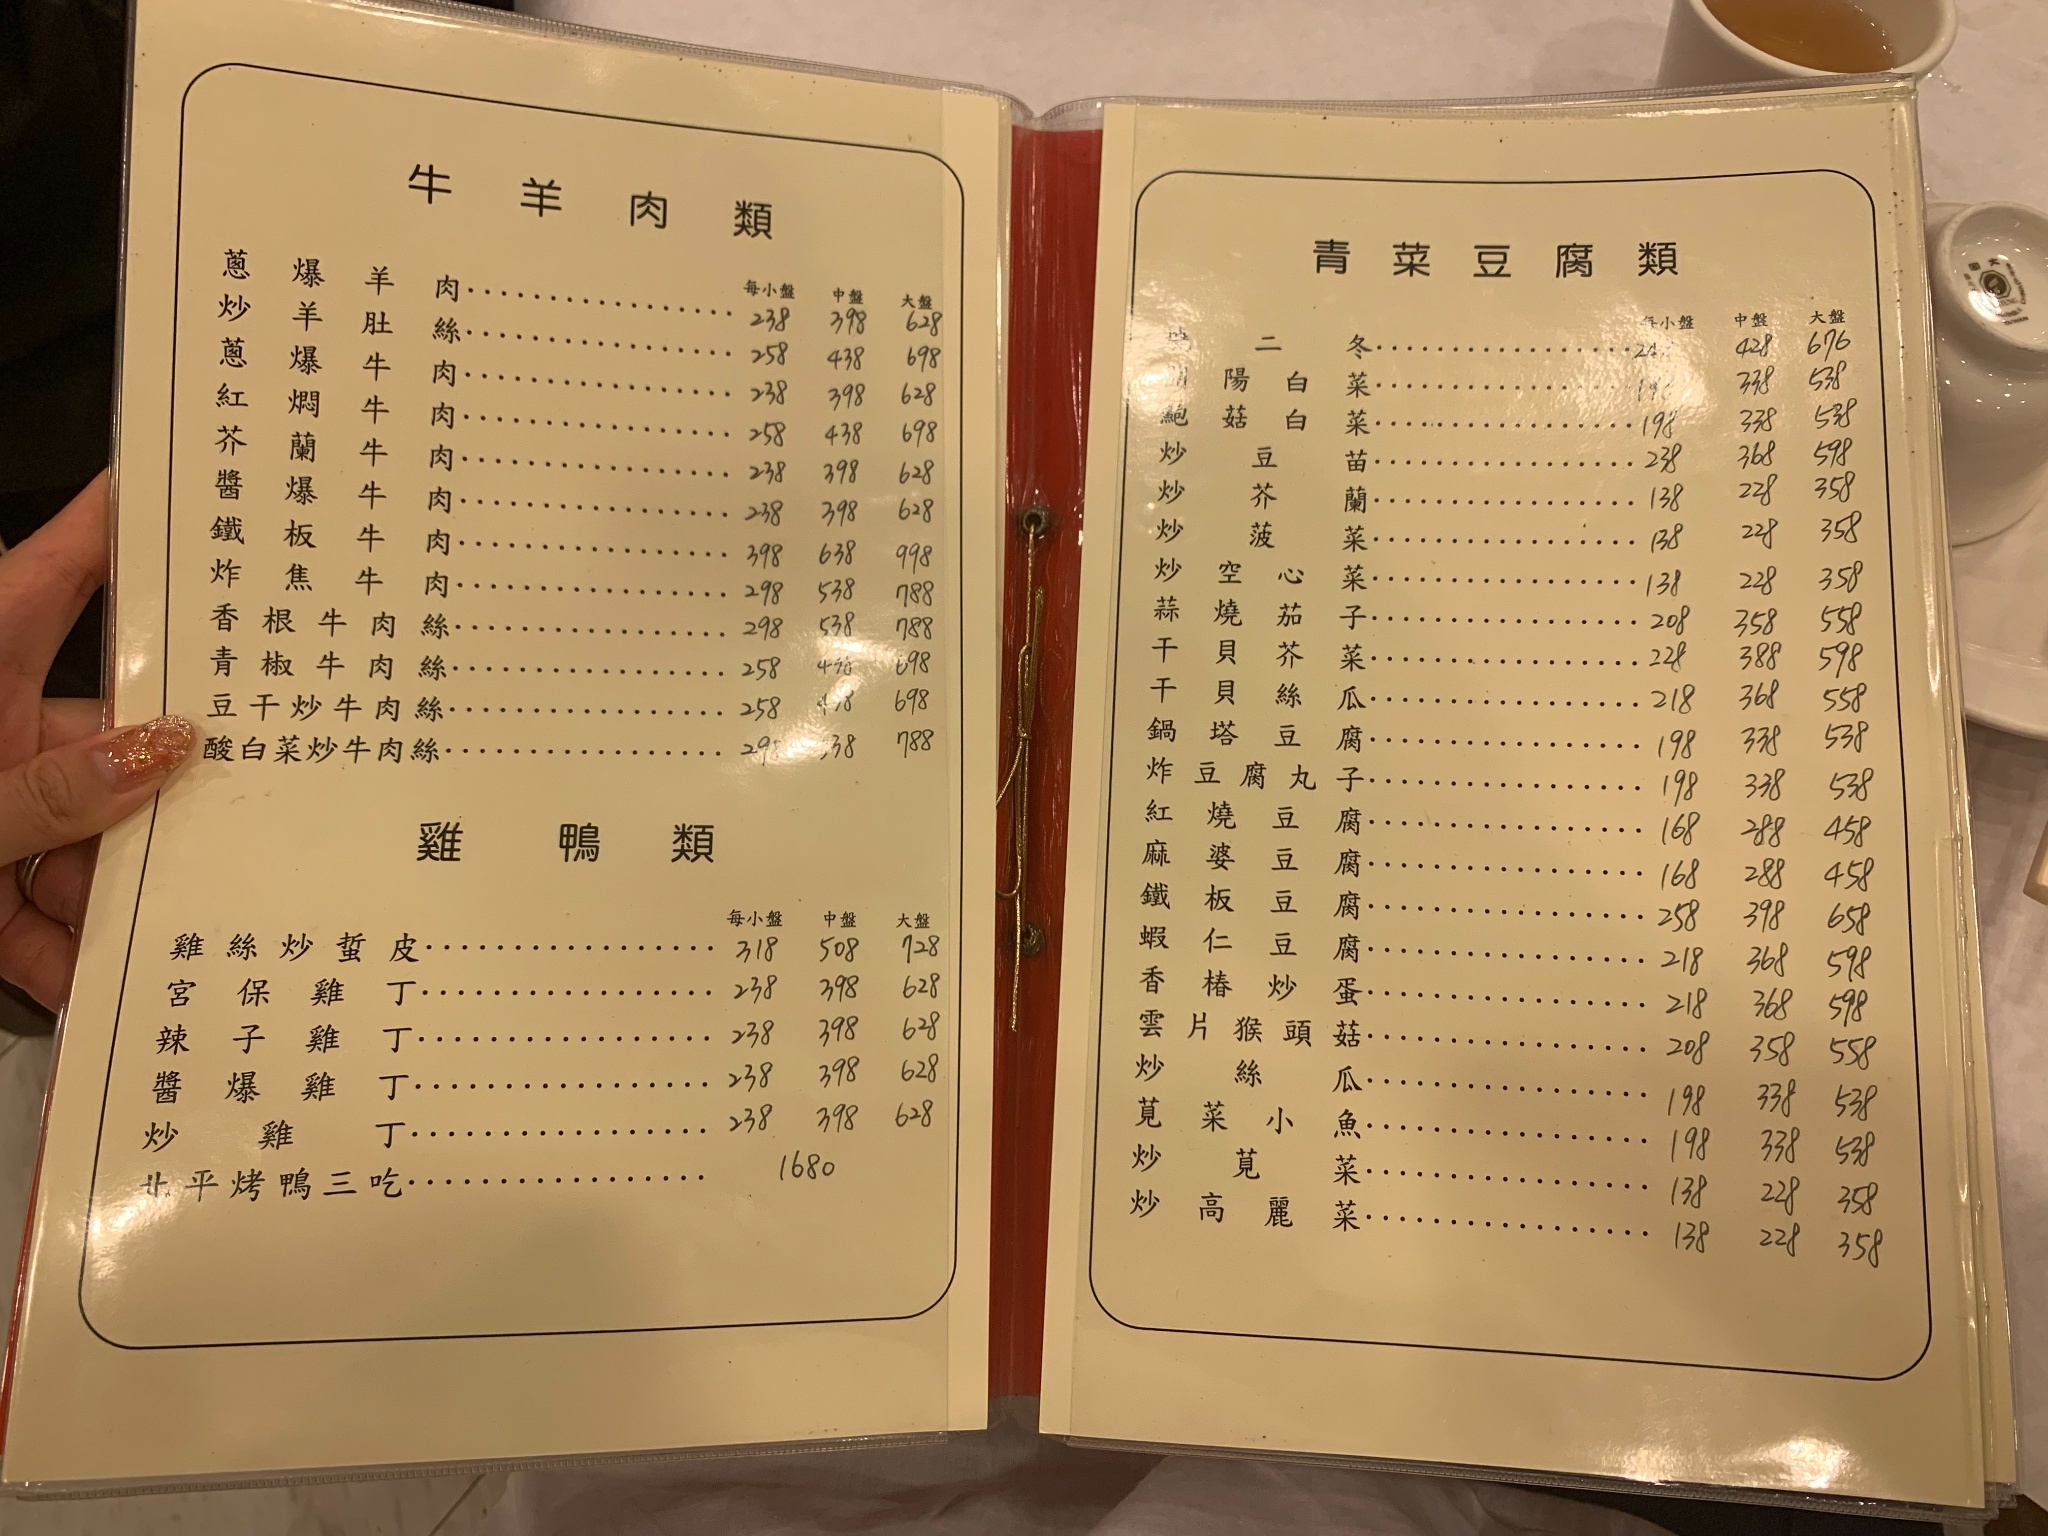 牛羊肉類
每小盤 中盤 大盤
蔥爆羊肉 238 398 628
炒羊肚絲 258 438 698
蔥爆牛肉 238 398 628
紅燜牛肉 258 438 698
芥蘭牛肉 238 398 628
醬爆牛肉 238 398 628
鐵板牛肉 398 638 998
炸焦牛肉 298 538 788
香根牛肉絲 298 538 788
青椒牛肉絲 258 698
豆干炒牛肉絲 258 698
酸白菜炒牛肉絲 788
雞鴨類
每小盤 中盤 大盤
雞絲炒蜇皮 318 508 728
宮保雞丁 238 398 628
辣子雞丁 238 398 628
醬爆雞丁 238 398 628
炒雞丁 238 398 628
北平烤鴨三吃 1680
青菜豆腐類
每小盤 中盤 大盤
二冬 428 676
陽白菜 338 538
鮑菇白菜 198 338 538
炒豆苗 238 368 598
炒芥蘭 138 228 358
炒菠菜 138 228 358
炒空心菜 138 228 358
蒜燒茄子 208 358 558
干貝芥菜 228 388 598
干貝絲瓜 218 368 558
鍋塔豆腐 198 338 538
炸豆腐丸子 198 338 538
紅燒豆腐 168 288 458
麻婆豆腐 168 288 458
鐵板豆腐 258 398 658
蝦仁豆腐 218 368 598
香椿炒蛋 218 368 598
雲片猴頭菇 208 358 558
炒絲瓜 198 338 538
莧菜小魚 198 338 538
炒莧菜 138 228 358
炒高麗菜 138 228 358